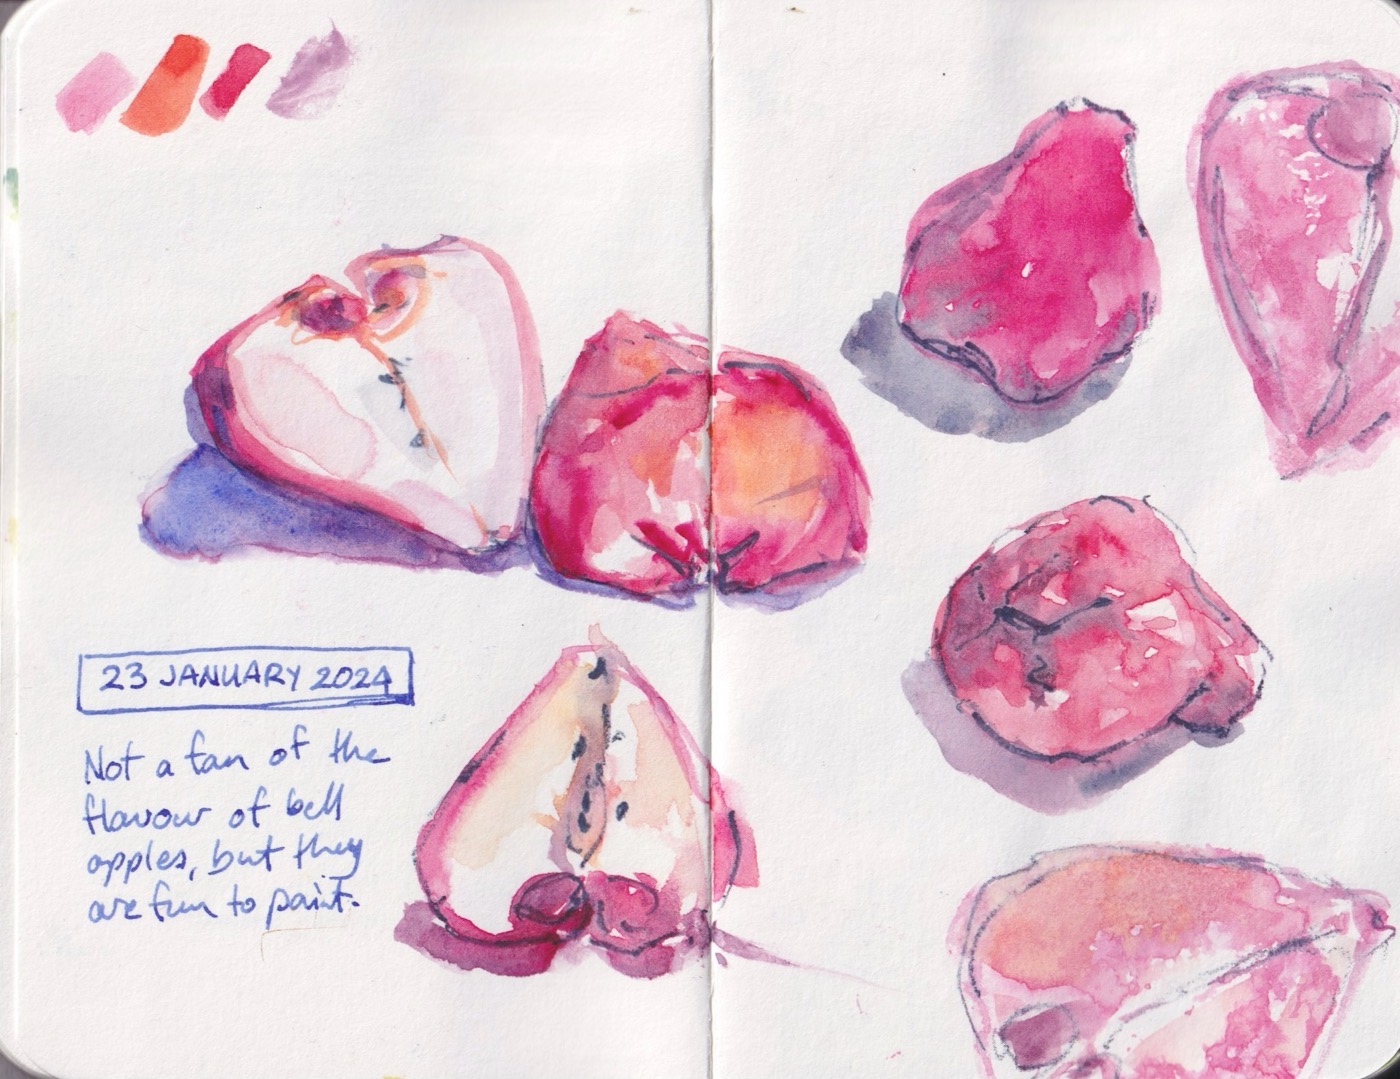 23 JANUARY 2024
Not a fan of the
flavour of bell
apples, but they
are fun to paint.